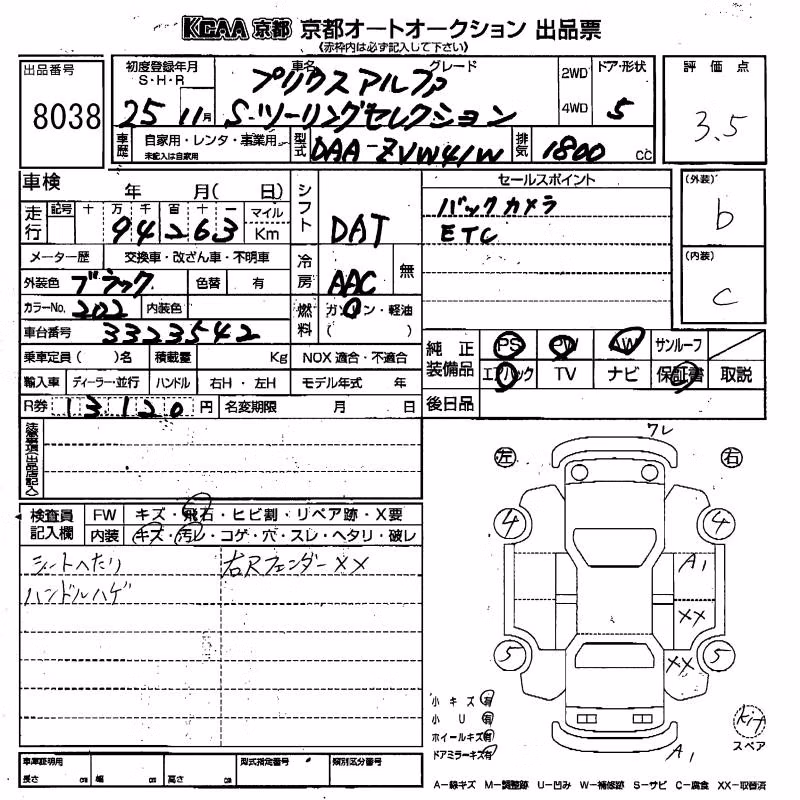 KCAA 京都 京都オートオークション 出品票
《赤枠内は必ず記入して下さい》
出品番号
8038
初度登録年月
S・H・R
25 11月
車名 グレード
プリウスアルファ
S・ツーリングセレクション
2WD
4WD
ドア・形状
5
評価点
3.5
車歴
自家用・レンタ・事業用
未記入は自家用
型式 DAA-ZVW41W
排気 1800 cc
車検 年 月( 日)
走行 記号 十 万 千 百 十 一 マイル
94263 Km
シフト DAT
セールスポイント
バックカメラ
ETC
(外装)
b
(内装)
c
メーター歴 交換車・改ざん車・不明車
外装色 ブラック 色替 有
冷房 AAC 無
カラーNo. 202 内装色
燃料 ガソリン・軽油
( )
車台番号 3323542
乗車定員( )名 積載量 Kg NOX適合・不適合
輸入車 ディーラー・並行 ハンドル 右H・左H モデル年式 年
R券 13120 円 名変期限 月 日
純正装備品 PS PW AW サンルーフ
エアバック TV ナビ 保証書 取説
後日品
検査員記入欄 FW キズ・飛石・ヒビ割・リペア跡・X要
内装 キズ・汚レ・コゲ・穴・スレ・ヘタリ・破レ
シートへたり 右Rフェンダー XX
ハンドルハゲ
ワレ
左 右
4 4
A1
XX
5 XX 5
小キズ有
小U有
ホイールキズ有
ドアミラーキズ有
A1
kit
スペア
車庫証明用
長さ cm 幅 cm 高さ cm
型式指定番号
類別区分番号
A-線キズ M-調整跡 U-凹み W-補修跡 S-サビ C-腐食 XX-取替済